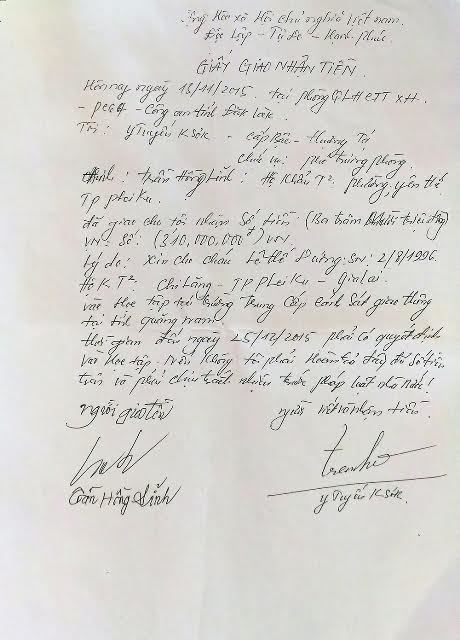 Cộng Hòa xã Hội chủ nghĩa Việt nam.
Độc Lập - Tự do - Hạnh phúc.
GIẤY GIAO NHẬN TIỀN.
Hôm nay ngày 13/11/2015. tại phòng QLHC TT XH.
- PC64 - Công an tỉnh Đắk Lắk.
Tôi: Y Tuyến KSơr - cấp Bậc - Thượng Tá
chức vụ: phó trưởng phòng.
Anh: Trần Hồng Lĩnh: Hộ Khẩu T²: phường, yên thế
TP pleiku.
đã giao cho tôi nhận Số tiền: (Ba trăm mười triệu đồng)
VN: Số: (310,000,000đ) VNĐ.
Lý do: Xin cho cháu Lê Thế Dương: SN: 2/8/1996.
HKT²: Chi Lăng - TP PleiKu - Gia Lai.
vào Học tập tại trường Trung Cấp Cảnh Sát giao thông
tại tỉnh Quảng nam.
thời gian đến ngày 25/12/2015 phải có quyết định
vào Học tập. Nếu Không tôi phải hoàn trả đầy đủ số tiền
trên và phải chịu trách nhiệm trước pháp luật nhà nước!
người giao tiền
người viết và nhận tiền.
Trần Hồng Lĩnh
Y Tuyến KSơr.